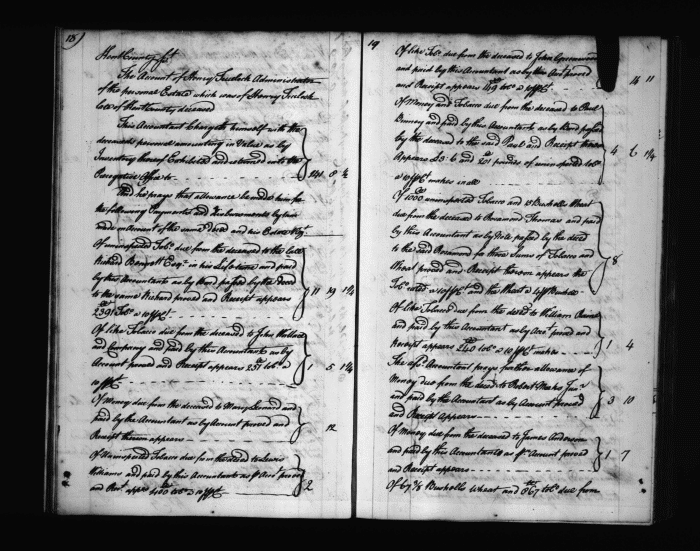 18
Kent County Sct
The Account of Henry Trulock Administrator
of the personal Estate which was of Henry Trulock
late of Kent County deceased
This Accountant Chargeth himself with the
deceaseds personal amounting in Value as by
Inventory thereof Exhibited and returned into the
Prerogative Office to 241 8
And he prays that allowance be made him for
the following Payments and Disbursements by him
made on Account of the same Deced and his Estate Viz
Of uninspected Tobo due from the deceased to the late
Richard Esqr in his Lifetime and paid
by this Accountant as by Bond passed by the Deced
to the same Richard proved and Receipt appears
2391 Tobo @ 10/ 11 19 1¼
Of like Tobacco due from the deceased to John
and Company and paid by this Accountant as by
Account proved and Receipt appears 251 lbs @
10/ 1 5 1¼
Of Money due from the deceased to Mary and
paid by the Accountant as by Account proved and
Receipt thereon appears 12
Of Uninspected Tobacco due from the deced to Lewis
Williams and paid by this Accountant as pr Acct proved
and Rect appears 400 lbs @ 10/ 2
19
Of like Tobo due from the deceased to John Greenwood
and paid by this Accountant as by this Acct proved
and Receipt appears @ 10/ 4 11
Of Money and Tobacco due from the deceased to Paul
and paid by this Accountant as by Bond passed
by the deceased to the said Paul and Receipt thereon
Appears £3 6 and 201 pounds of uninspected tobo
@ 10/ makes in all 4 6 1¼
Of 1000 uninspected Tobacco and Bushells Wheat
due from the deceased to Rosamond Thomas and paid
by this Accountant as by Bill passed by the deced
to the said Rosamond for those Sums of Tobacco and
Wheat proved and Receipt thereon appears the
Tobo rated @ 10/ and the Wheat @ Bushell 8
Of like Tobacco due from the deced to William
and paid by this Accountant as by Acct proved and
Receipt appears 240 lbs @ 10/ makes 1 4
The afd Accountant prays further allowance of
Money due from the deced to Robert Junr
and paid by the Accountant as by Account proved
and Receipt Appears 3 10
Of Money due from the deceased to James Anderson
and paid by this Accountant as pr Account proved
and Receipt appears 1 7
Of 67 Bushells Wheat and 867 lbs due from